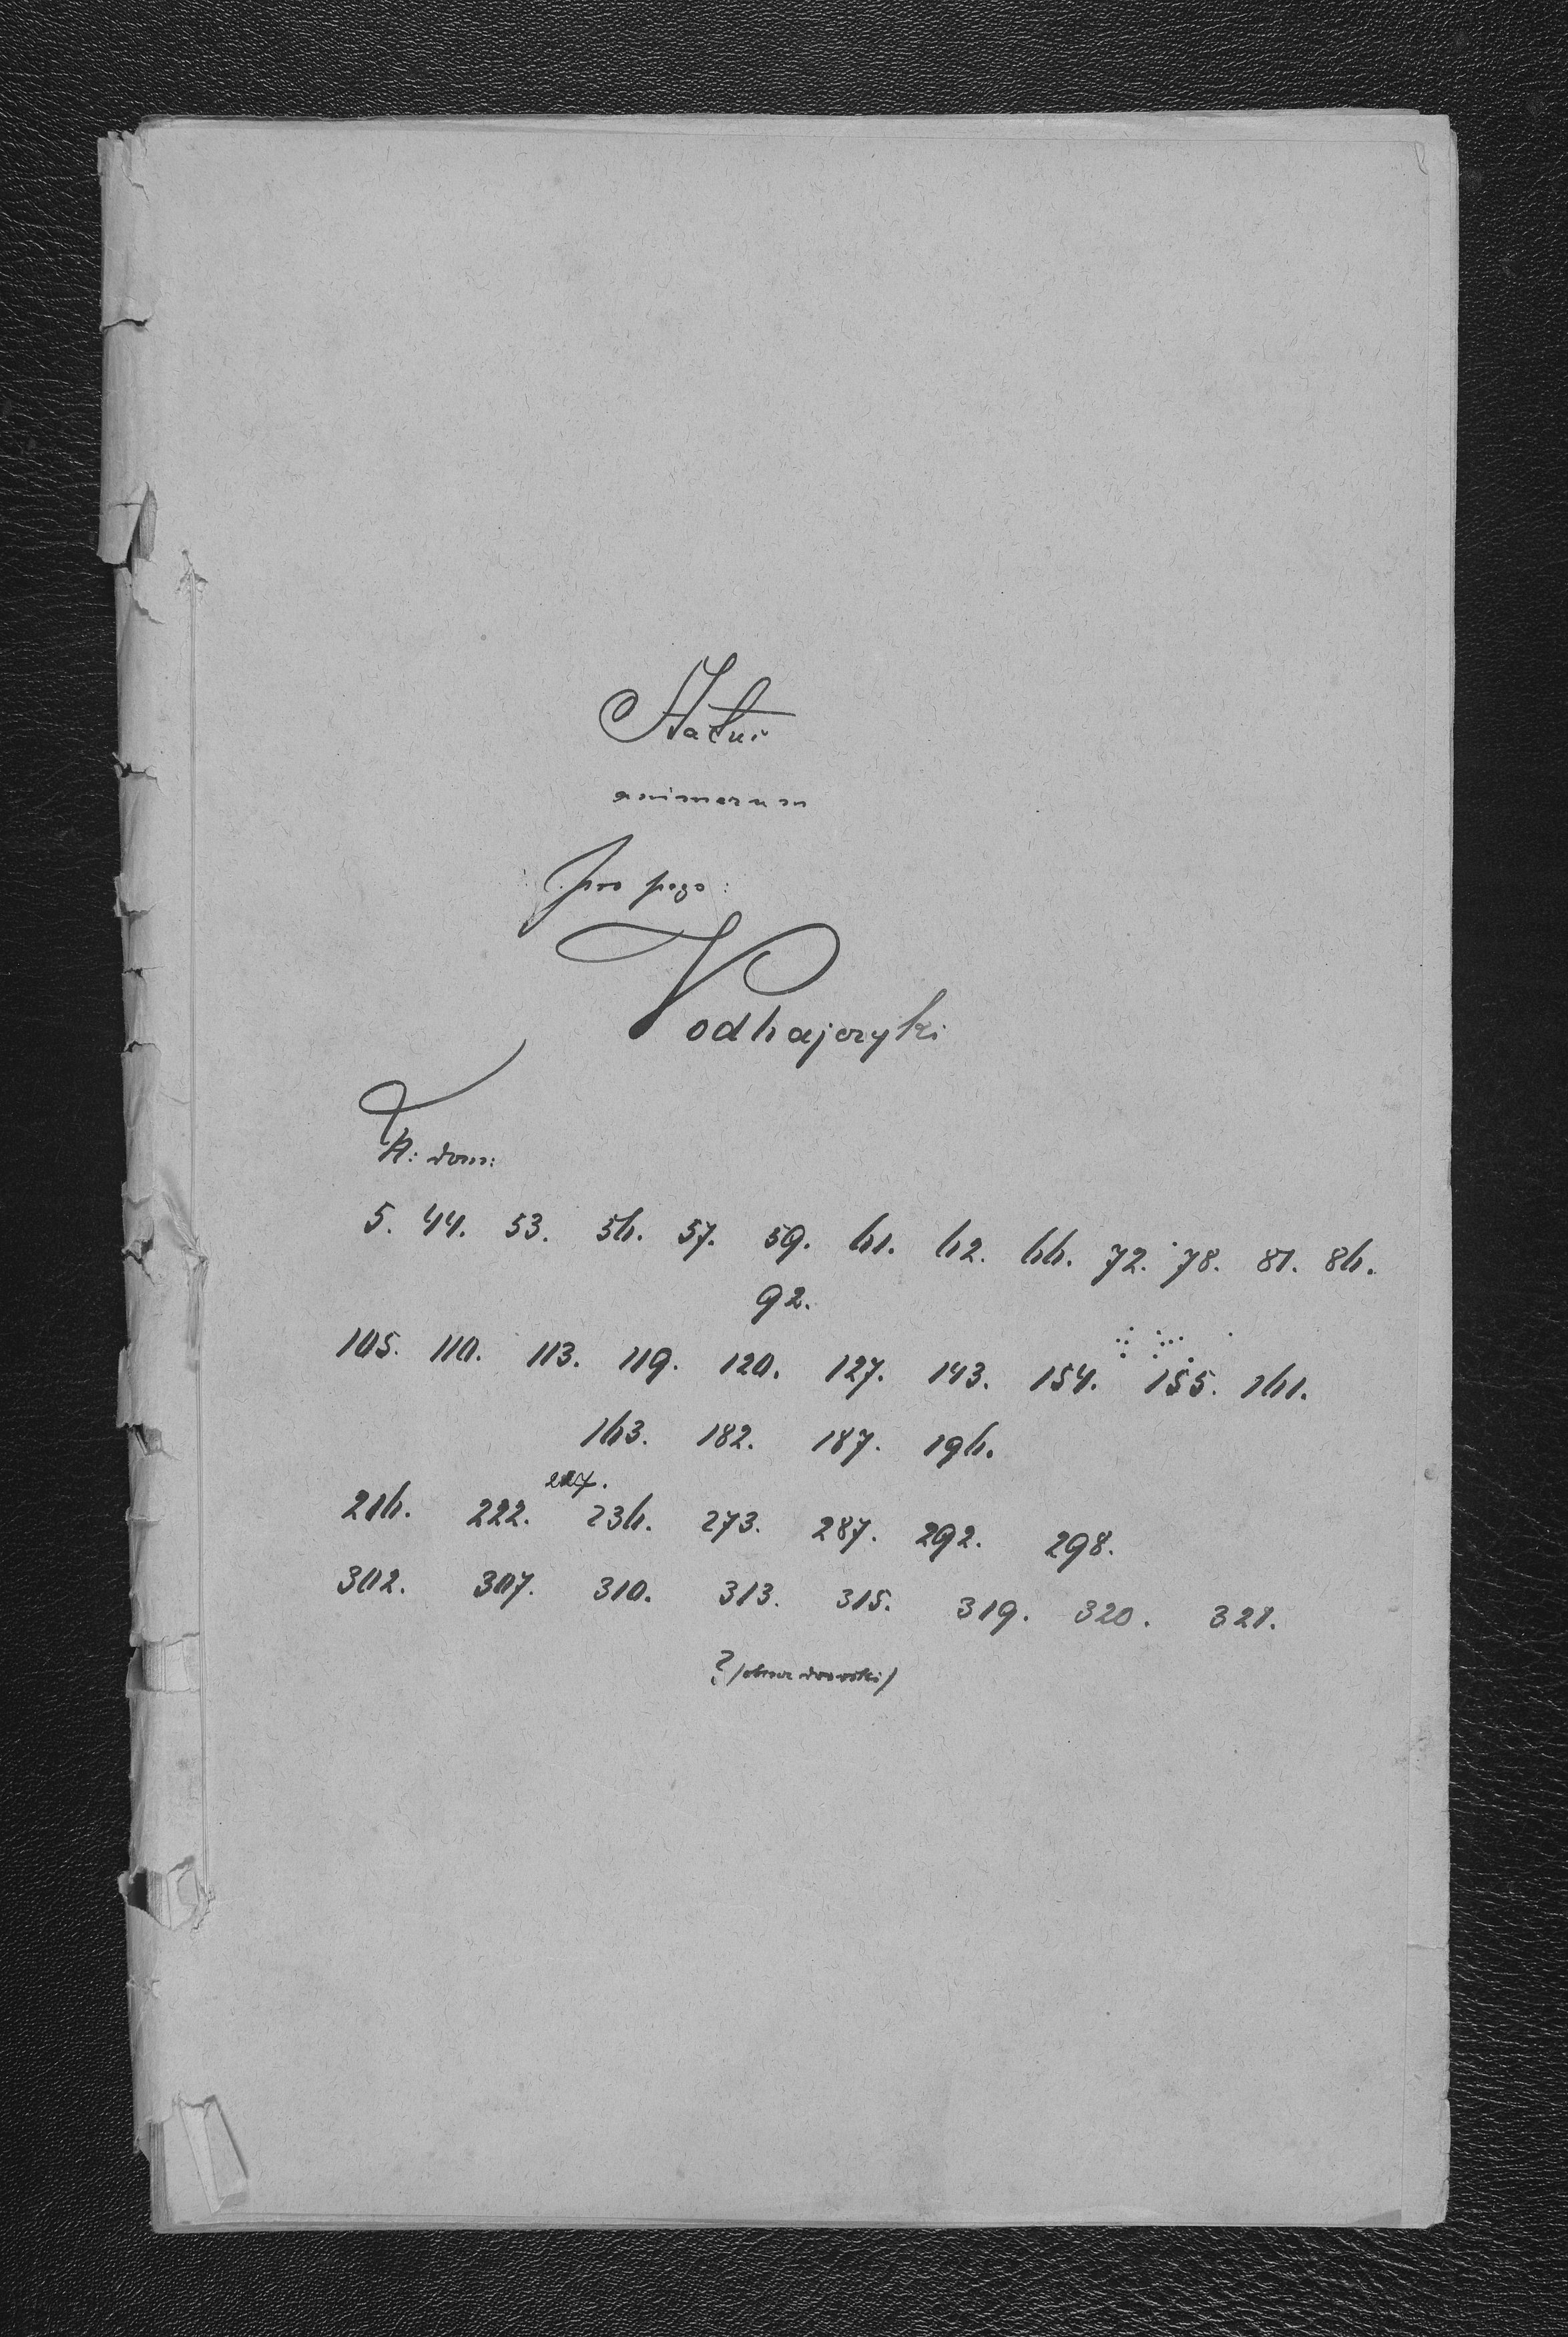 Status
animarum
pro pago:
Podhajczyki
N: dom:
5. 44. 53. 56. 57. 59. 61. 62. 66. 72. 78. 81. 86.
92.
105. 110. 113. 119. 120. 127. 143. 154. 155. 161.
163. 182. 187. 196.
227.
216. 222. 236. 273. 287. 292. 298.
302. 307. 310. 313. 315. 319. 320. 321.
?